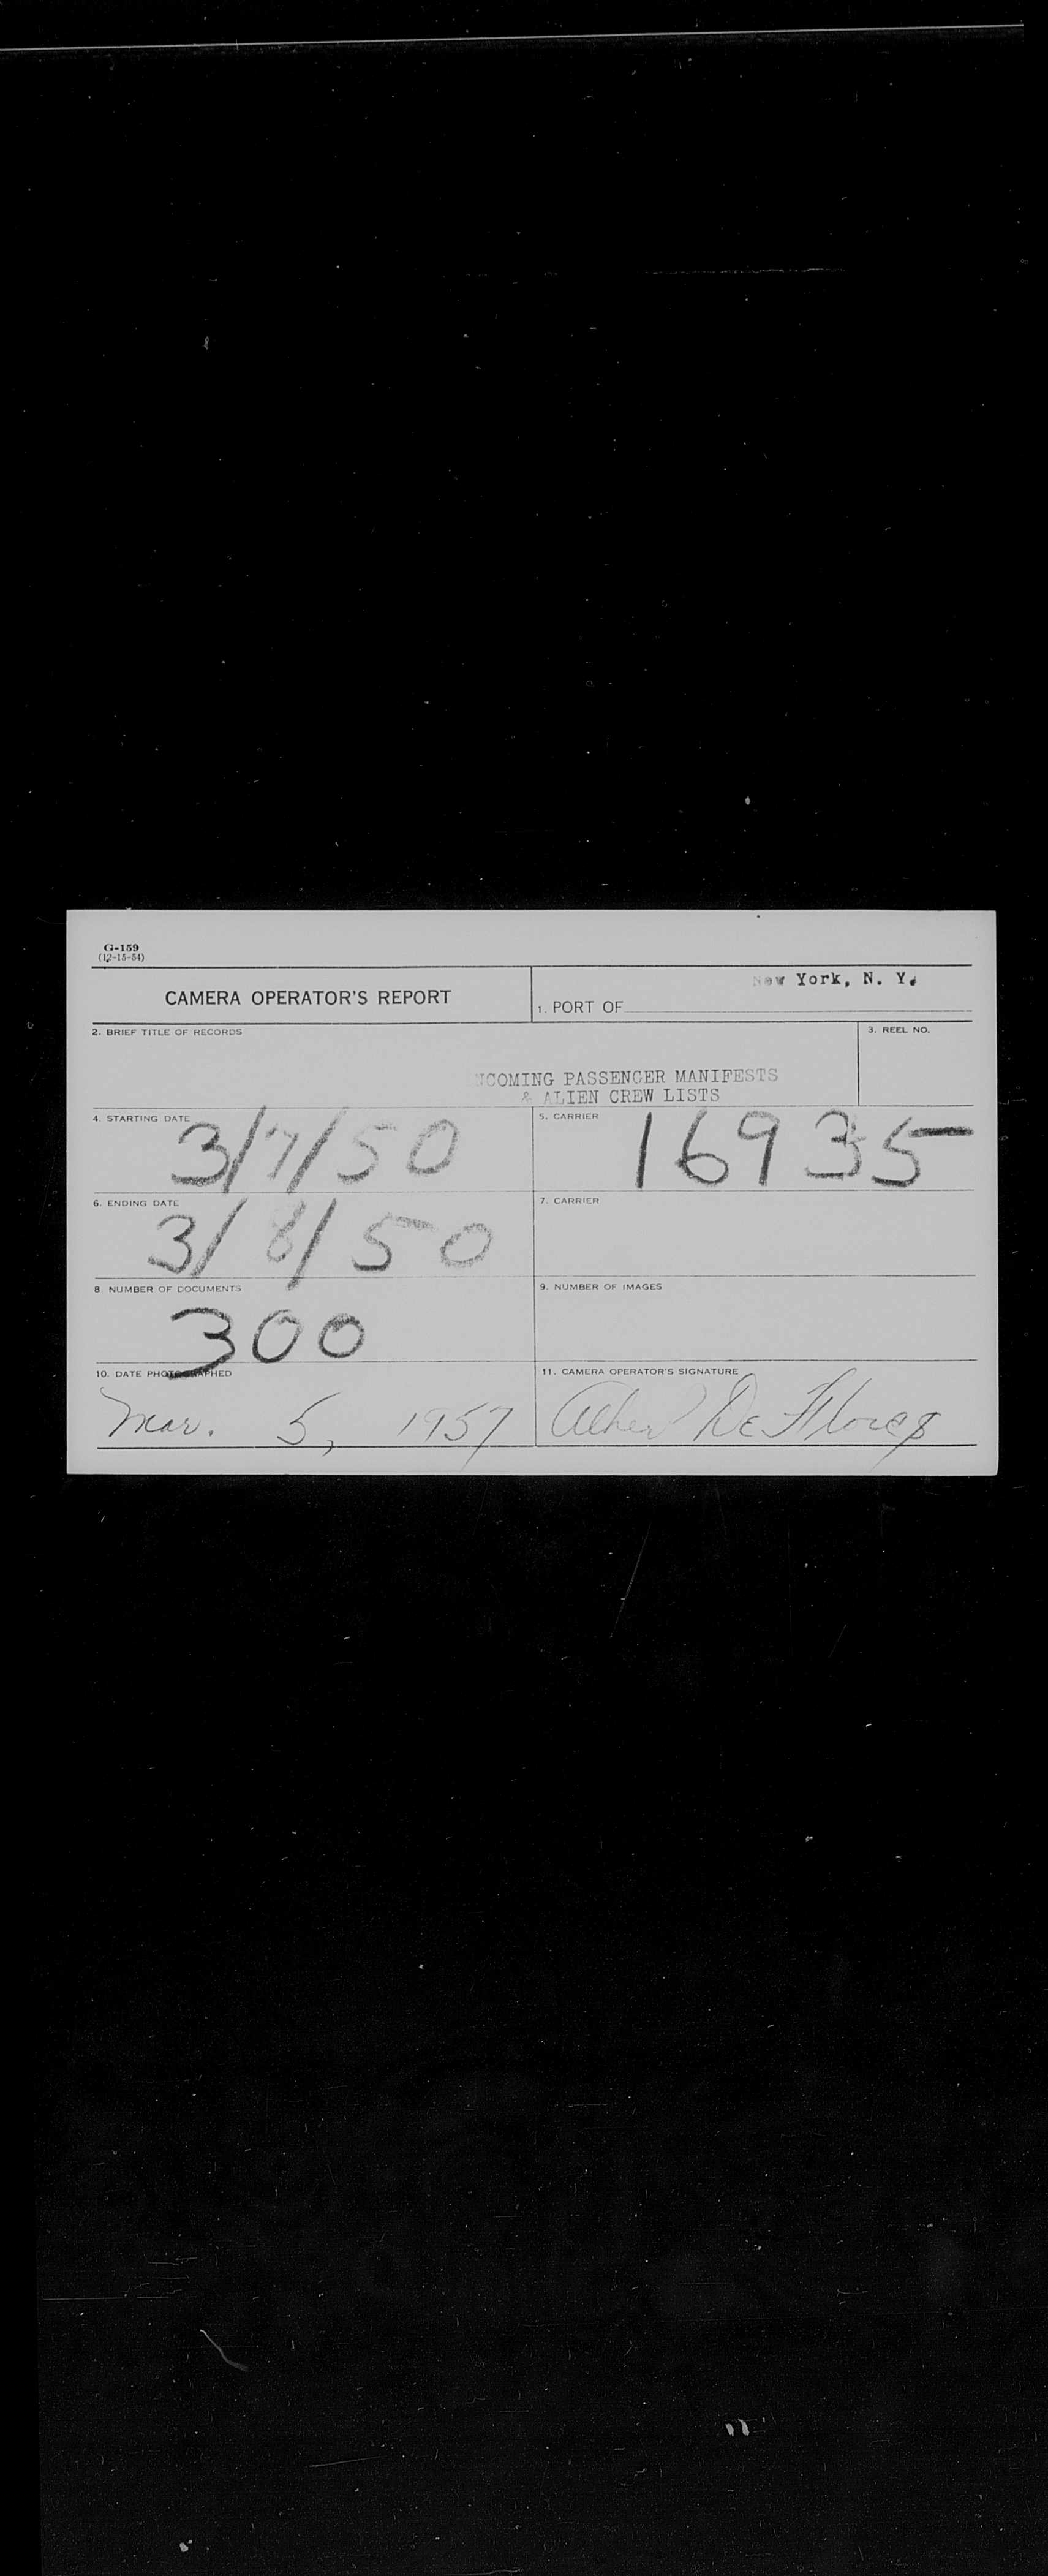 G-159
(12-15-54)
CAMERA OPERATOR'S REPORT
New York, N. Y.
1. PORT OF
2. BRIEF TITLE OF RECORDS
3. REEL NO.
INCOMING PASSENGER MANIFESTS
& ALIEN CREW LISTS
4. STARTING DATE
3/7/50
5. CARRIER
16935
6. ENDING DATE
3/8/50
7. CARRIER
8 NUMBER OF DOCUMENTS
300
9. NUMBER OF IMAGES
10. DATE PHOTOGRAPHED
Mar. 5, 1957
11. CAMERA OPERATOR'S SIGNATURE
De